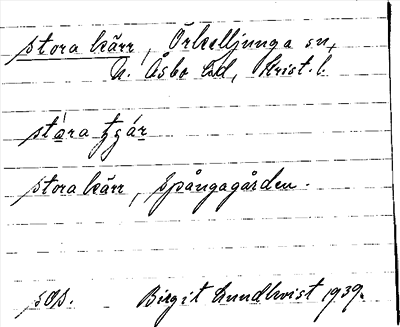 stora kärr, Örkelljunga sn,
N. Åsbo hd, Krist. l.
stára tjär
stora kärr, Spångagården.
sap. Birgit Lundkvist 1939.